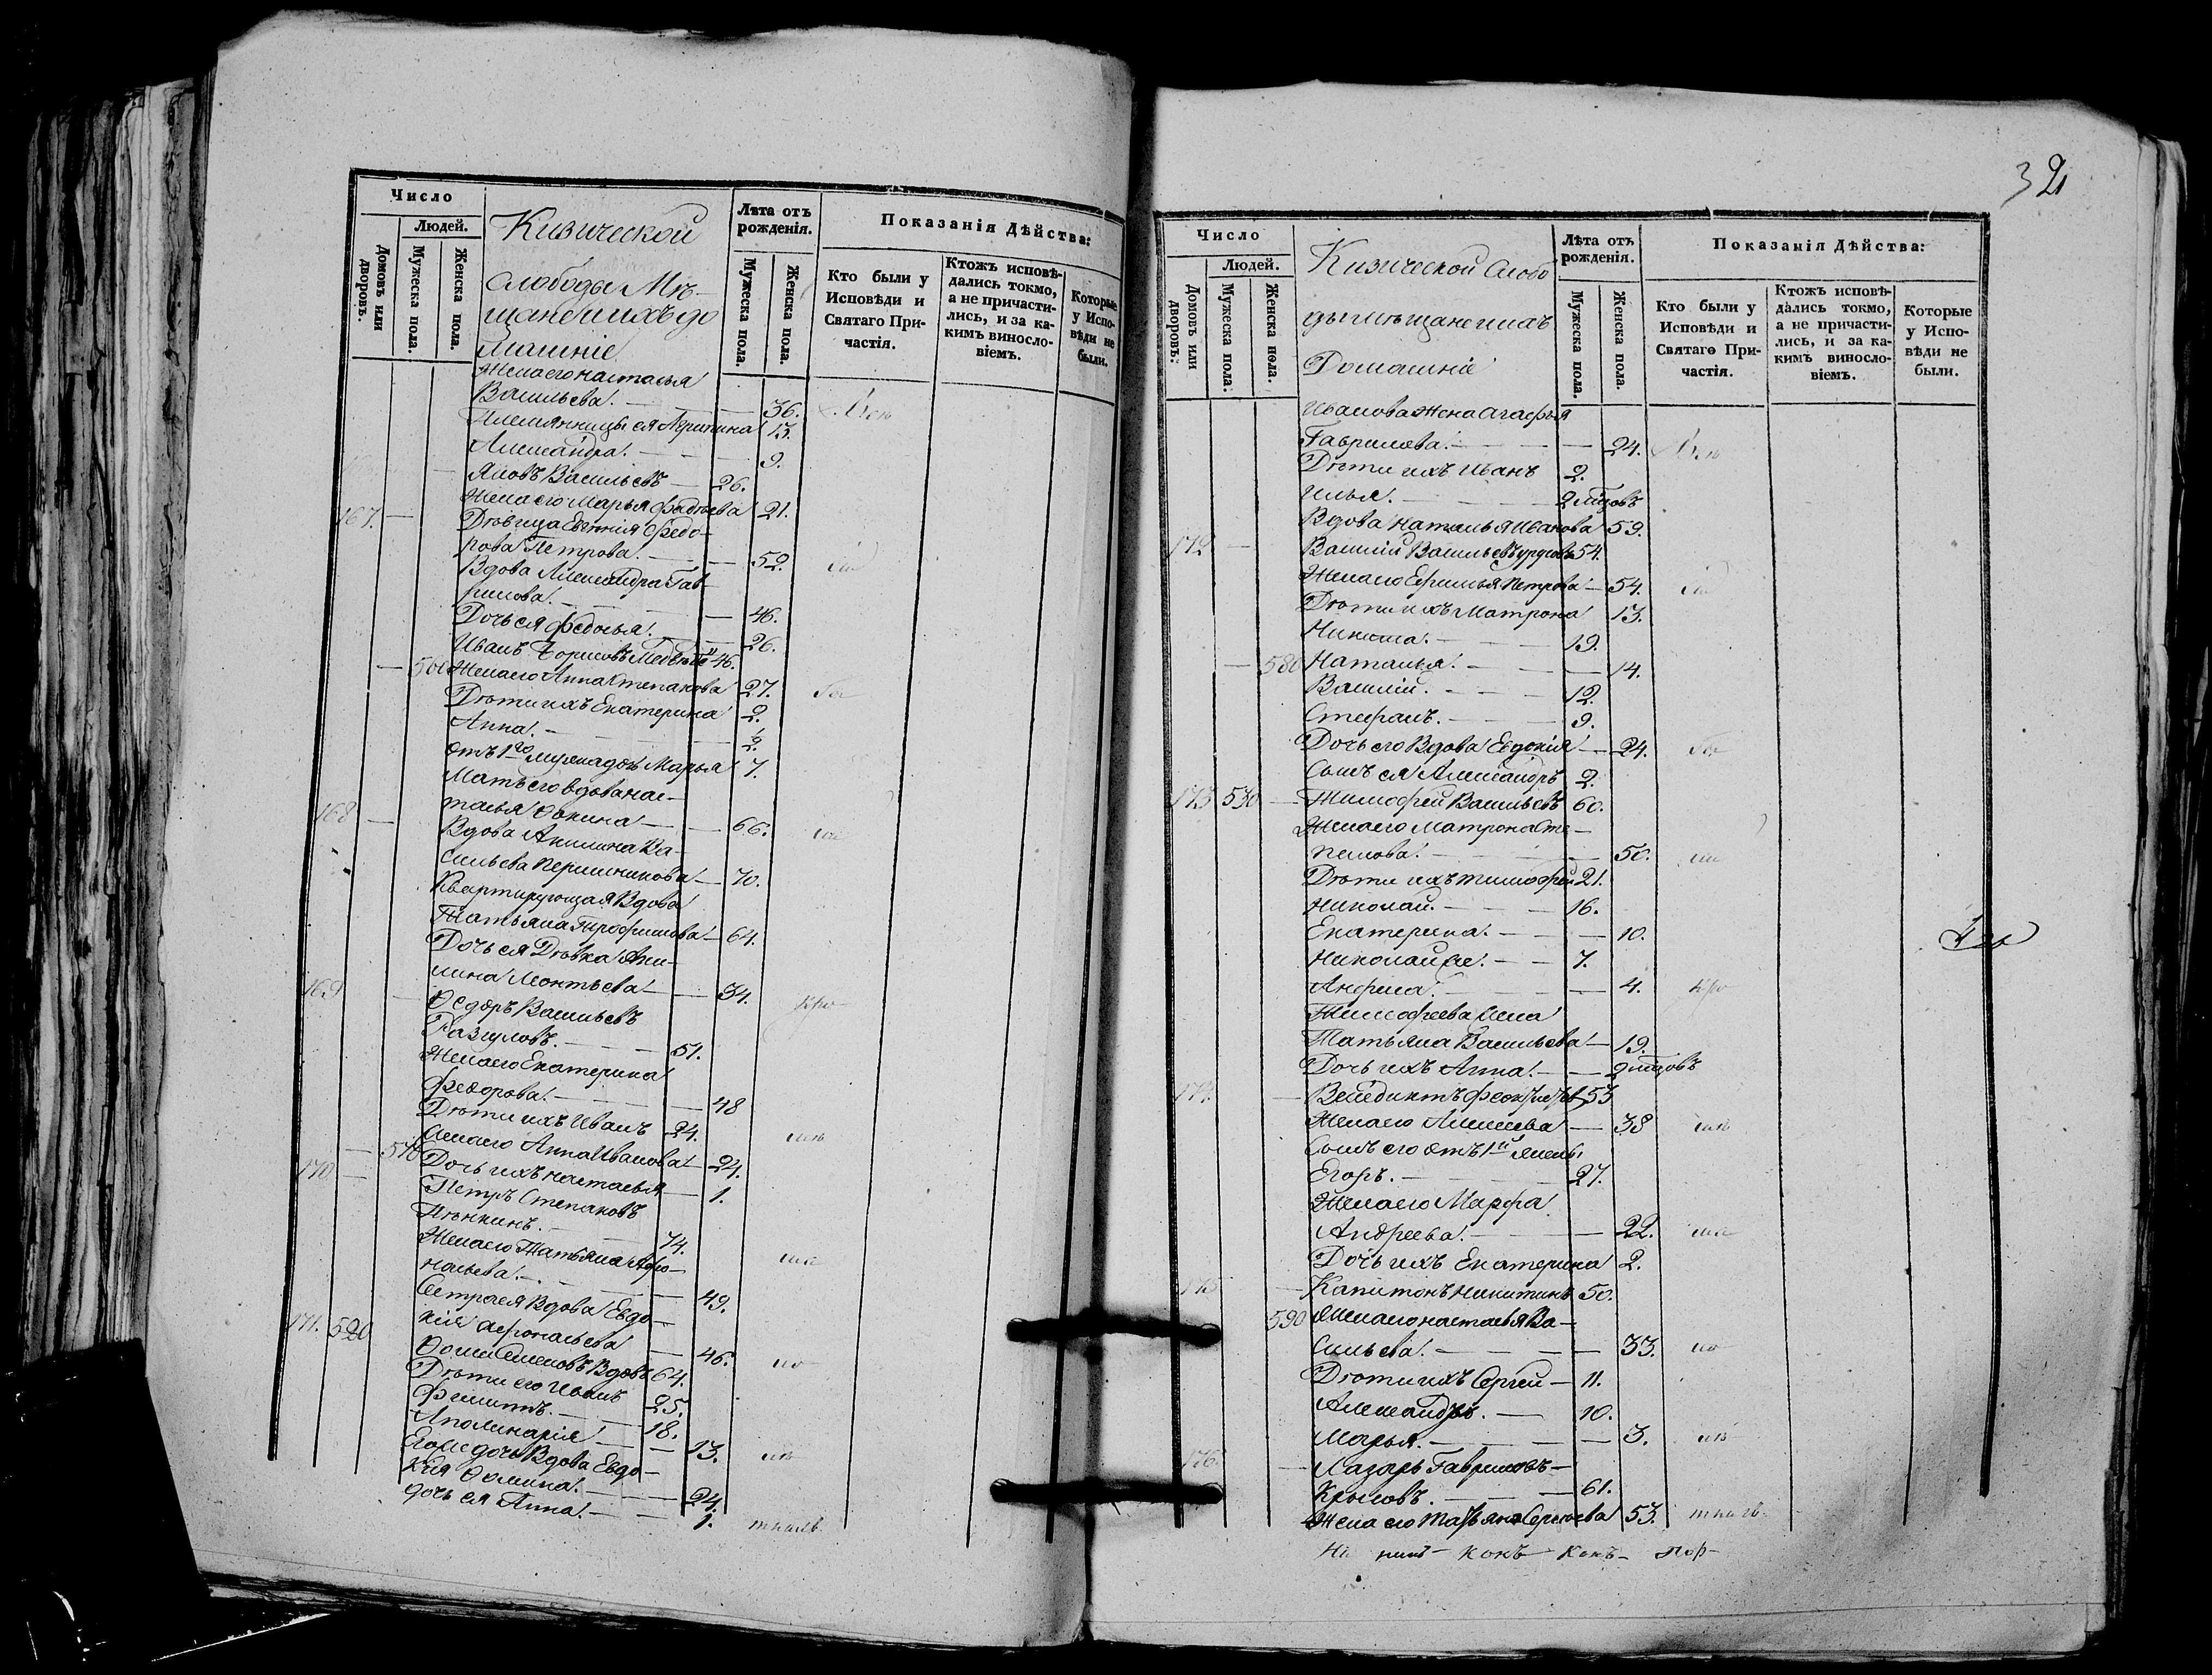 Число
Людей.
Домовъ или дворовъ.
Мужеска пола.
Женска пола.
Кизической
слободы Мѣ-
щане и ихъ до
машніе
Лѣта отъ рожденія.
Мужеска пола.
Женска пола.
Показанія Дѣйства:
Кто были у Исповѣди и Святаго Причастія.
Ктожъ исповѣдались токмо, а не причастились, и за какимъ винословіемъ.
Которые у Исповѣди не были.
Жена его Настасья
Васильева. — 36.
Племянницы ея Агрипина 13.
Александра. — 9.
Яковъ Васильевъ — 26.
Жена его Марья Фадѣева 21.
167. — Дѣвица Евгенія Федо-
рова Петрова. — 52.
Вдова Александра Гав-
рилова. — 46.
Дочь ея Федосья. — 26.
Иванъ Борисовъ 46.
— 500 Жена его Анна Степанова 27.
Дѣти ихъ Екатерина 2.
Анна. — ½
Отъ 1го Марья 7.
Мать его вдова Нас-
тасья Ѳокина — 66.
168 — Вдова Акилина Ва-
сильева — 70.
Квартирующая Вдова
Татьяна Трофимова — 64.
Дочь ея Дѣвка Аки-
лина Леонтьева — 34.
169 Ѳедоръ Васильевъ
Разгуловъ. — 51.
Жена его Екатерина
Федорова. — 48
Дѣти ихъ Иванъ 24.
Жена его Анна Иванова — 24.
— 570 Дочь ихъ Настасья — 1.
170 — Петръ Степановъ
Пѣнкинъ. — 74.
Жена его Татьяна Афо-
насьева. — 49.
Сестра ея Вдова Евдо-
кія Афонасьева — 46.
171. 520 Ѳома Семеновъ Вдовъ 64.
Дѣти его Иванъ 25.
Филиппъ. — 18.
Аполинарія — 13.
Его же дочь Вдова Евдо-
кія Ѳомина. — 24.
дочь ея Анна. — 1.
32
Число
Людей.
Домовъ или дворовъ.
Мужеска пола.
Женска пола.
Кизической Слобо
ды мѣщане и ихъ
Домашніе
Лѣта отъ рожденія.
Мужеска пола.
Женска пола.
Показанія Дѣйства:
Кто были у Исповѣди и Святаго Причастія.
Ктожъ исповѣдались токмо, а не причастились, и за какимъ винословіемъ.
Которые у Исповѣди не были.
Иванова жена Агафья
Гаврилова. — 24.
Дѣти ихъ Иванъ 2.
Илья. — 2 мѣцовъ
Вдова Наталья Иванова 59.
172 — Василій Васильевъ 54.
Жена его Ефимья Петрова — 54.
Дѣти ихъ Матрона 13.
Никита. — 19.
— 580 Наталья. — 14.
Василій. — 12.
Стефанъ. — 9.
Дочь его Вдова Евдокія — 24.
Сынъ ея Александръ 2.
173 530 — Тимофей Васильевъ 60.
Жена его Матрона Сте-
панова. — 50.
Дѣти ихъ Тимофей 21.
Николай. — 16.
Екатерина. — 10.
Николай же. — 7.
Анфиса. — 4.
Тимофеева жена
Татьяна Васильева — 19.
Дочь ихъ Анна. — 2 мѣцовъ
174. — Венедиктъ 53
Жена его Алексеева — 38
Сынъ его отъ 1й жены
Егоръ. — 27.
Жена его Марфа
Андреева. — 22.
Дочь ихъ Екатерина 2.
175 — Капитонъ Никитинъ 50.
590 Жена его Настасья Ва-
сильева. — 33.
Дѣти ихъ Сергей — 11.
Александръ. — 10.
Марья. — 3.
176. — Лазарь Гавриловъ —
Крыловъ. — 61.
Жена его Татьяна Сергеева 53.